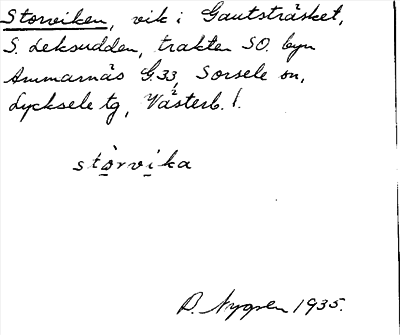 Storviken, vik i Gautsträsket,
S. Leksudden, trakten SO. byn
Ammarnäs G.33, Sorsele sn,
Lycksele tg, Västerb. l.
stòrvika
D. Nygren 1935.